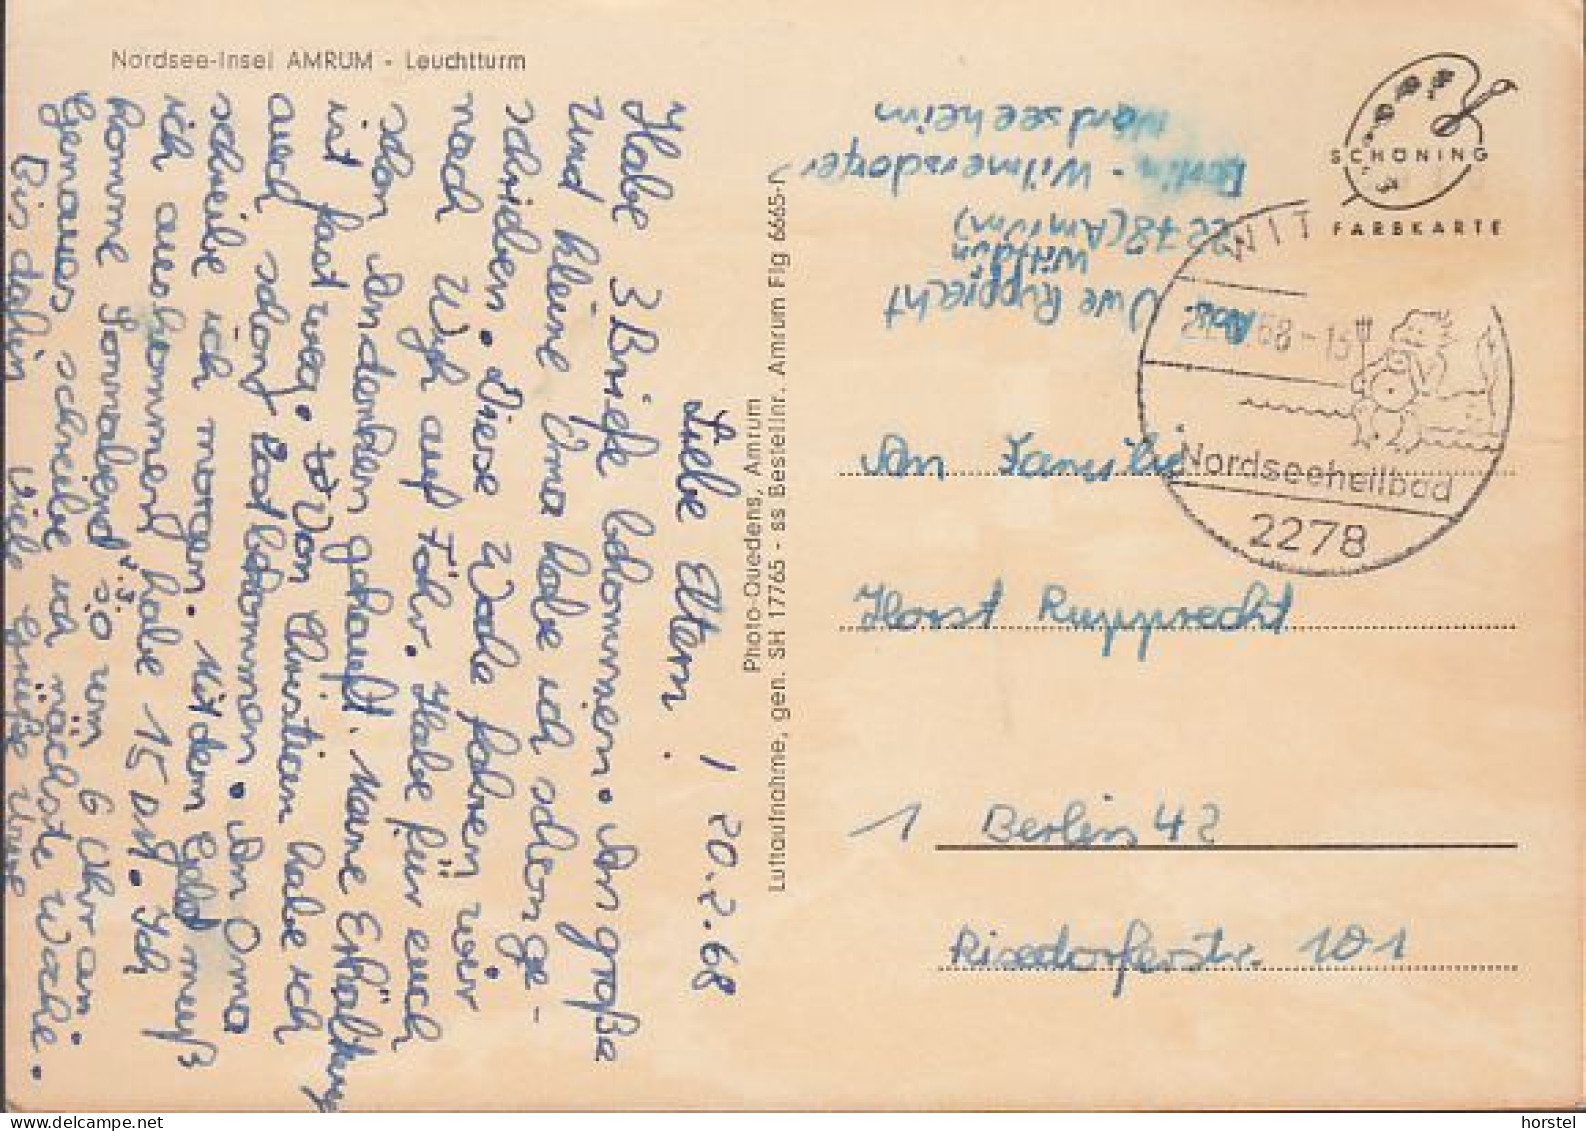 Nordsee-Insel AMRUM - Leuchtturm
Liebe Eltern! 20.2.68
Habe 3 Briefe bekommen. An große
und kleine Oma habe ich schon ge-
schrieben. Diese Woche fahren wir
nach Wyk auf Föhr. Habe für euch
schon Andenken gekauft. Meine Erkältung
ist fast weg. Von Christian habe ich
auch schon Post bekommen. An Oma
schreibe ich morgen. Mit dem Geld muß
ich auskommen habe 15 DM. Ich
komme Sonnabend 2.3. so um 6 Uhr an.
Genaues schreibe ich nächste Woche.
Bis dahin viele Grüße Uwe
Photo-Quedens, Amrum
Luftaufnahme, gen. SH 17765 - ss Bestellnr. Amrum Flg 6665-1
SCHÖNING
FARBKARTE
Abs.
Uwe Rupprecht
Wittdün
2278 (Amrum)
Berlin - Wilmersdorfer
Nordseeheim
WIT
68-15
Nordseeheilbad
2278
An Familie
Horst Rupprecht
1 Berlin 42
Rixdorferstr. 101
www.delcampe.net
horstel